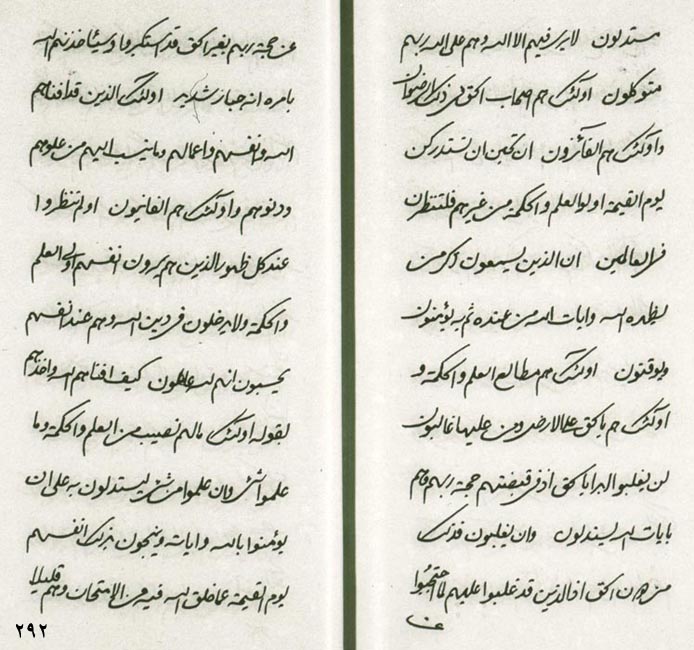 مستدلون لا يرى فيهم الا الله وهم على الله ربهم
متوكلون اولئك هم اصحاب الحق فى ذلك الرضوان
واولئك هم الفائزون ان تحبن ان تستدركن
يوم القيمة اولوا العلم والحكمة من غيرهم فلتنظرن
فى العالمين ان الذين يسمعون ذكر من
يظهره الله وايات الله من عنده ثم به يؤمنون
ويوقنون اولئك هم مطالع العلم والحكمة و
اولئك هم بالحق على الارض ومن عليها غالبون
لن يغلبوا البرايا بالحق اذ فى قبضتهم حجة ربهم وهم
بايات الله ليستدلون وان يغلبون فذلك
من دون الحق اذ الذين قد غلبوا عليهم لما احتجبوا
عن
عن حجة ربهم بغير الحق قد استكبروا وسيأخذنهم الله
بامره انه جبار شديد اولئك الذين قد افناهم
الله وانفسهم واعمالهم وما ينسب اليهم من علوهم
ودنوهم واولئك هم الفانيون اولم تنظروا
عند كل ظهور الذين هم يرون انفسهم اولى العلم
والحكمة ولا يدخلون فى دين الله وهم عند انفسهم
يحسبون انهم لله عاملون كيف افناهم الله واخذهم
بقوله اولئك مالهم نصيب من العلم والحكمة وما
علموا من شئ وان علموا من شئ ليستدلون به على ان
يؤمنوا بالله واياته وينجون بذلك انفسهم
يوم القيمة عما خلق الله فيه من الامتحان وهم قليلا
٢٩٢